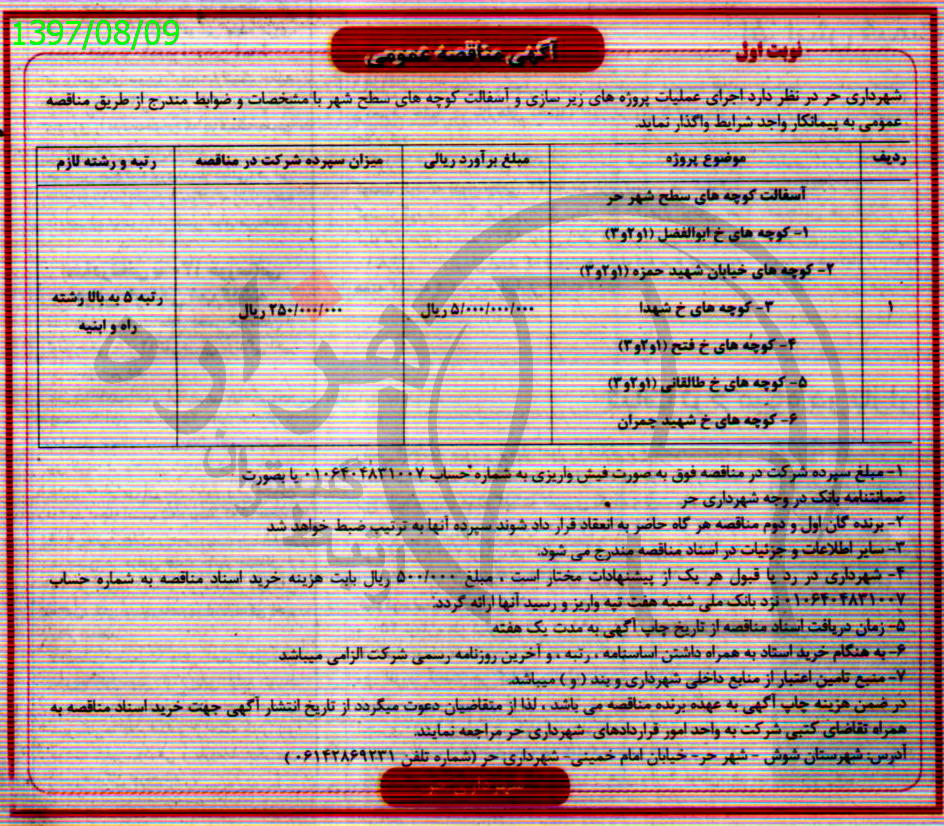 1397/08/09
آگهی مناقصه عمومی
نوبت اول
شهرداری حر در نظر دارد اجرای عملیات پروژه های زیر سازی و آسفالت کوچه های سطح شهر با مشخصات و ضوابط مندرج از طریق مناقصه
عمومی به پیمانکار واجد شرایط واگذار نماید.
ردیف موضوع پروژه مبلغ برآورد ریالی میزان سپرده شرکت در مناقصه رتبه و رشته لازم
آسفالت کوچه های سطح شهر حر
۱- کوچه های خ ابوالفضل (۱و۲و۳)
۲- کوچه های خیابان شهید حمزه (۱و۲و۳)
۱ ۳- کوچه های خ شهدا ۵/۰۰۰/۰۰۰/۰۰۰ ریال ۲۵۰/۰۰۰/۰۰۰ ریال رتبه ۵ به بالا رشته
راه و ابنیه
۴- کوچه های خ فتح (۱و۲و۳)
۵- کوچه های خ طالقانی (۱و۲و۳)
۶- کوچه های خ شهید چمران
۱- مبلغ سپرده شرکت در مناقصه فوق به صورت فیش واریزی به شماره حساب ۰۱۰۶۴۰۴۸۳۱۰۰۷ یا بصورت
ضمانتنامه بانک در وجه شهرداری حر
۲- برنده گان اول و دوم مناقصه هر گاه حاضر به انعقاد قرار داد شوند سپرده آنها به ترتیب ضبط خواهد شد
۳- سایر اطلاعات و جزئیات در اسناد مناقصه مندرج می شود.
۴- شهرداری در رد یا قبول هر یک از پیشنهادات مختار است ، مبلغ ۵۰۰/۰۰۰ ریال بابت هزینه خرید اسناد مناقصه به شماره حساب
۰۱۰۶۴۰۴۸۳۱۰۰۷ نزد بانک ملی شعبه هفت تپه واریز و رسید آنها ارائه گردد.
۵- زمان دریافت اسناد مناقصه از تاریخ چاپ آگهی به مدت یک هفته
۶- به هنگام خرید اسناد به همراه داشتن اساسنامه ، رتبه ، و آخرین روزنامه رسمی شرکت الزامی میباشد
۷- منبع تامین اعتبار از منابع داخلی شهرداری و بند ( و ) میباشد.
در ضمن هزینه چاپ آگهی به عهده برنده مناقصه می باشد ، لذا از متقاضیان دعوت میگردد از تاریخ انتشار آگهی جهت خرید اسناد مناقصه به
همراه تقاضای کتبی شرکت به واحد امور قراردادهای شهرداری حر مراجعه نمایند.
آدرس: شهرستان شوش - شهر حر- خیابان امام خمینی- شهرداری حر (شماره تلفن ۰۶۱۴۲۸۶۹۲۳۱ )
شهرداری حر
هزاره